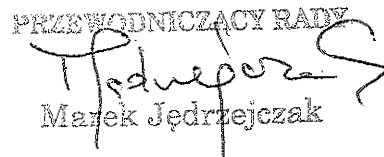 PRZEWODNICZĄCY RADY
Marek Jędrzejczak